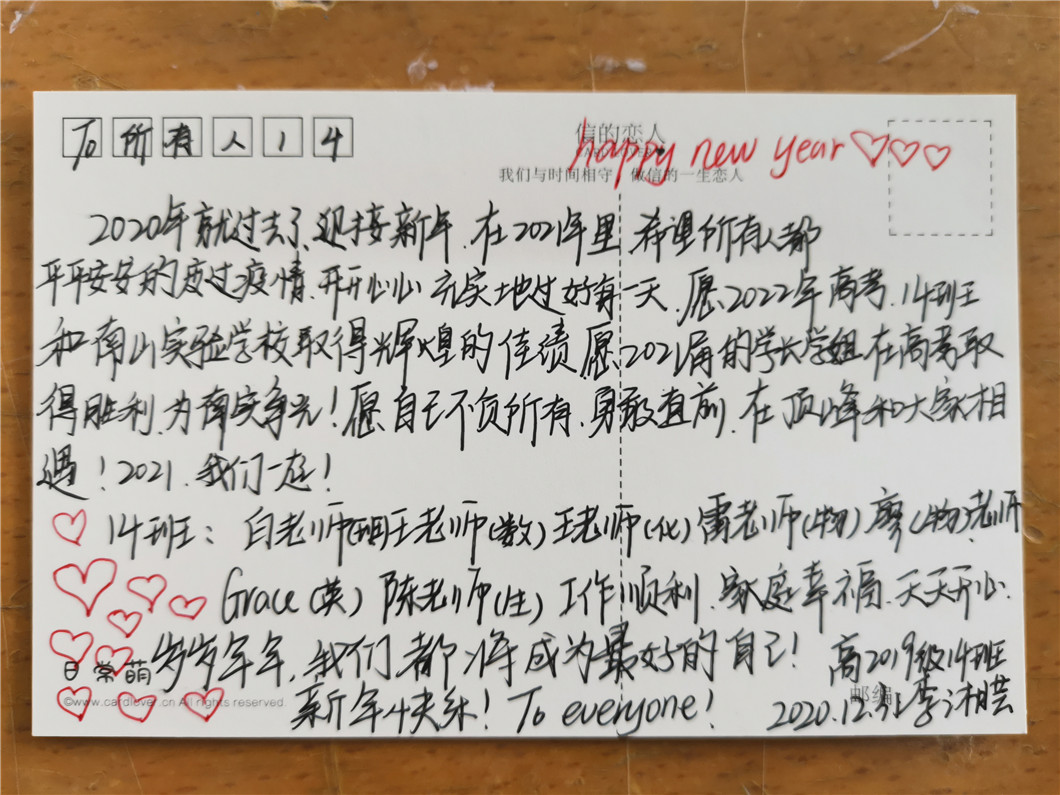 To 所有人14
信的恋人
happy new year
我们与时间相守,做信的一生恋人
2020年就过去了,迎接新年,在2021年里,希望所有人都
平平安安的度过疫情,开开心心充实地过好每一天,愿2022年高考,14班
和南山实验学校取得辉煌的佳绩,愿2021届的学长学姐在高考取
得胜利,为南实争光!愿自己不负所有,勇敢直前,在顶峰和大家相
遇!2021,我们一起!
14班:白老师(班)王老师(数)王老师(化)雷老师(物)廖(物)老师
Grace(英)陈老师(生)工作顺利,家庭幸福,天天开心.
岁岁年年,我们都将成为最好的自己!高2019级14班
日常萌
新年快乐!To everyone!
2020.12.31
邮编
©www.cardlover.cn All rights reserved.